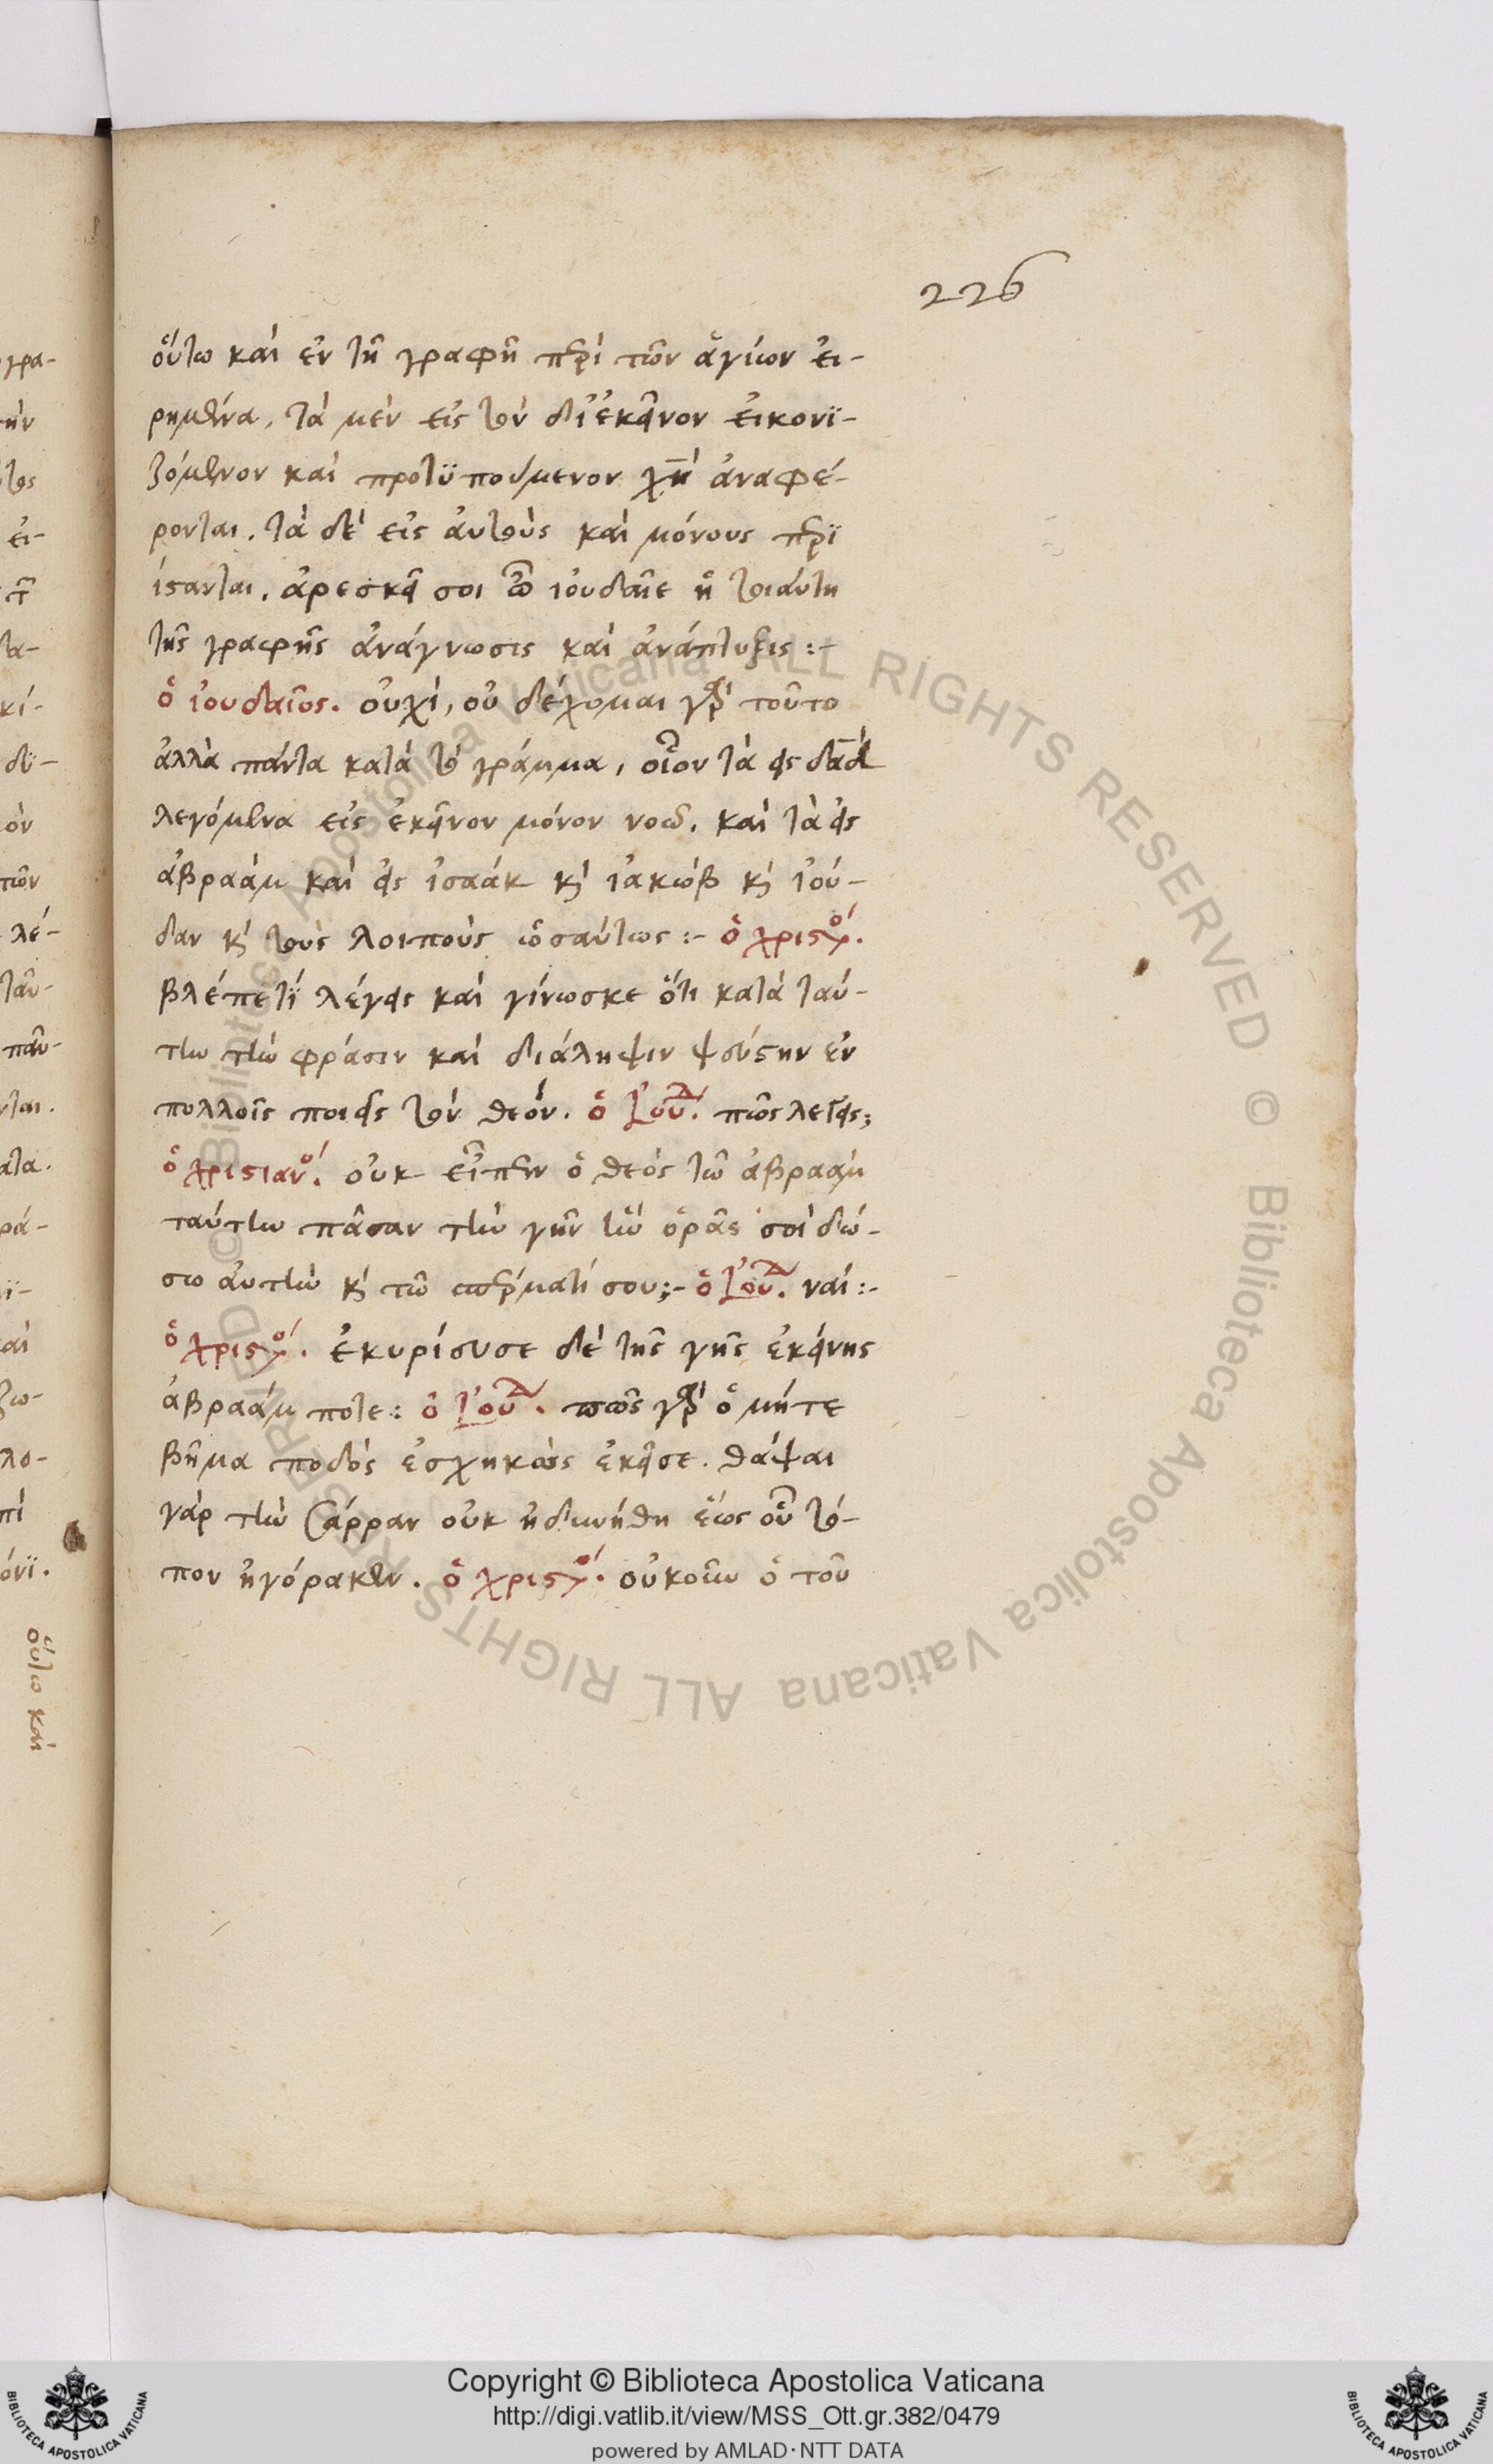 226
οὕτω καὶ ἐν τῆ γραφῆ περὶ τῶν ἁγίων εἰ-
ρημένα, τὰ μὲν εἰς τὸν δι' ἐκεῖνον εἰκονϊ-
ζόμενον καὶ προτϋπούμενον χν̄ ἀναφέ-
ρονται. τὰ δὲ εἰς αὐτοὺς καὶ μόνους περϊ
ίστανται. ἀρεσκει σοι ὦ ἰουδαῖε ἡ τοιαύτη
τῆς γραφῆς ἀνάγνωσις καὶ ἀνάπτυξις :-
ὁ ἰουδαῖος. οὐχὶ, οὐ δέχομαι γὰρ τοῦτο
ἀλλὰ πάντα κατὰ τὸ γράμμα, οἷον τὰ εἰς δᾱδ
λεγόμενα εἰς ἐκεῖνον μόνον νοῶ. καὶ τὰ εἰς
ἀβραὰμ καὶ εἰς ἰσαάκ κὶ ἰακώβ κὶ ἰού-
δαν κὶ τοὺς λοιποὺς ὡσαύτως :- ὁ χριστ.
βλέπε τί λέγεις καὶ γίνωσκε ὅτι κατὰ ταύ-
την τὴν φράσιν καὶ διάληψιν ψεύστην ἐν
πολλοῖς ποιεῖς τὸν θεόν. ὁ Ἰουδ. πῶς λέγεις;
ὁ χριστιανο. οὐκ εἶπεν ὁ θεὸς τῶ ἀβραὰμ
ταύτην πᾶσαν τὴν γῆν ἣν ὁρᾶς σοὶ δώ-
σω αὐτὴν κὶ τῶ σπέρματί σου;- ὁ Ἰουδ. ναί :-
ὁ χριστ. ἐκυρίευσε δὲ τῆς γῆς ἐκείνης
ἀβραάμ ποτε : ὁ Ἰουδ. πῶς γὰρ ὁ μήτε
βῆμα ποδὸς ἐσχηκὼς ἐκεῖσε. θάψαι
γὰρ τὴν Σάρραν οὐκ ἠδυνήθη ἕως οὗ τό-
πον ἠγόρακεν. ὁ χριστ. οὐκοῦν ὁ τοῦ
οὕτω καὶ
Copyright © Biblioteca Apostolica Vaticana
http://digi.vatlib.it/view/MSS_Ott.gr.382/0479
powered by AMLAD·NTT DATA